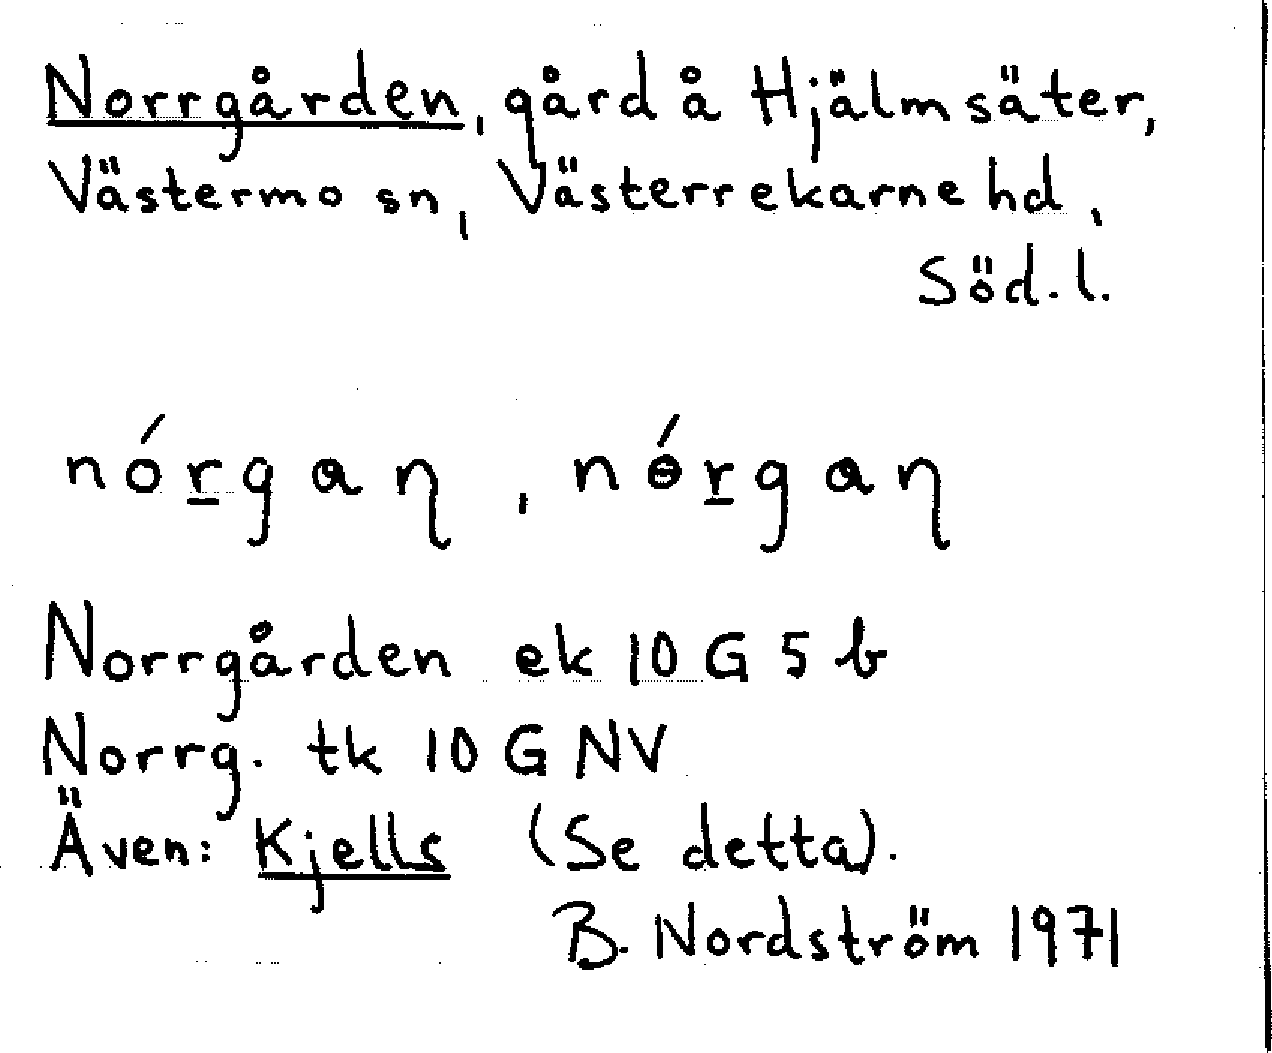 Norrgården, gård å Hjälmsäter,
Västermo sn, Västerrekarne hd,
Söd.l.
nórgaɳ, nɵ́rgaɳ
Norrgården ek 10 G 5 b
Norrg. tk 10 G NV
Även: Kjells (Se detta).
B. Nordström 1971